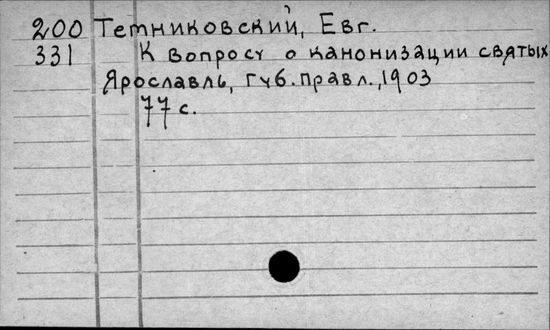 200 Темниковский, Евг.
331 К вопросу о канонизации святых
Ярославль, Губ. правл., 1903
77 с.